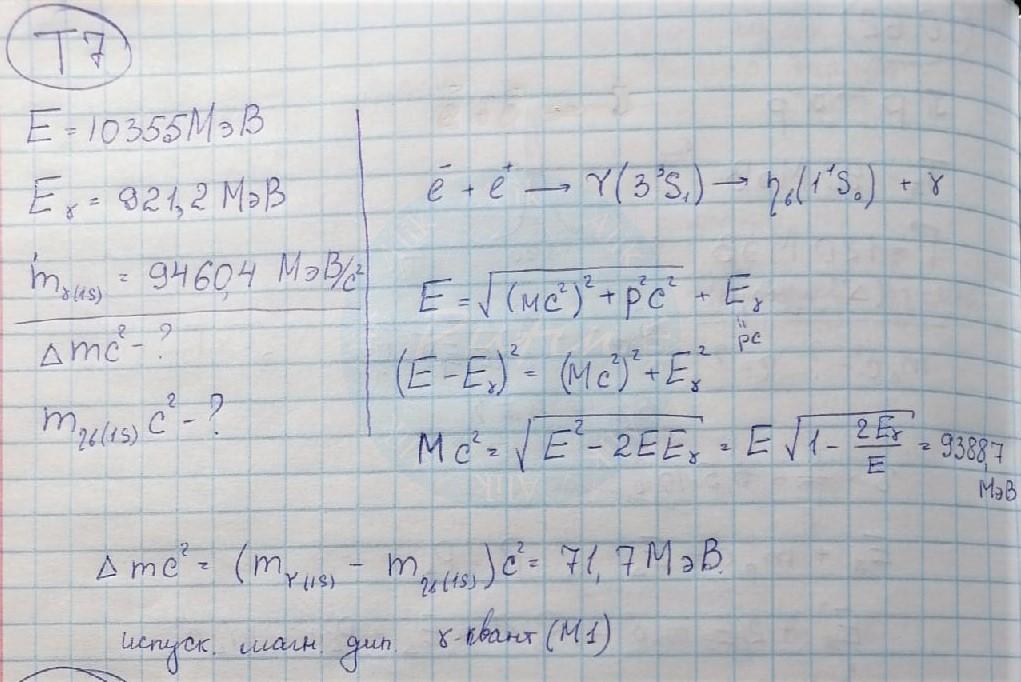 T7
E = 10355 МэВ
E_γ = 921,2 МэВ
m_γ(1S) = 9460,4 МэВ/c²
Δmc² - ?
m_ηb(1S) c² - ?
e⁻ + e⁺ → Υ(3³S₁) → η_b(1¹S₀) + γ
E = √((Mc²)² + p²c²) + E_γ
"
pc
(E - E_γ)² = (Mc²)² + E_γ²
Mc² = √(E² - 2EE_γ) = E √(1 - 2E_γ/E) = 9388,7
МэВ
Δmc² = (m_Υ(1S) - m_ηb(1S))c² = 71,7 МэВ.
испуск. магн. дип. γ-квант (M1)